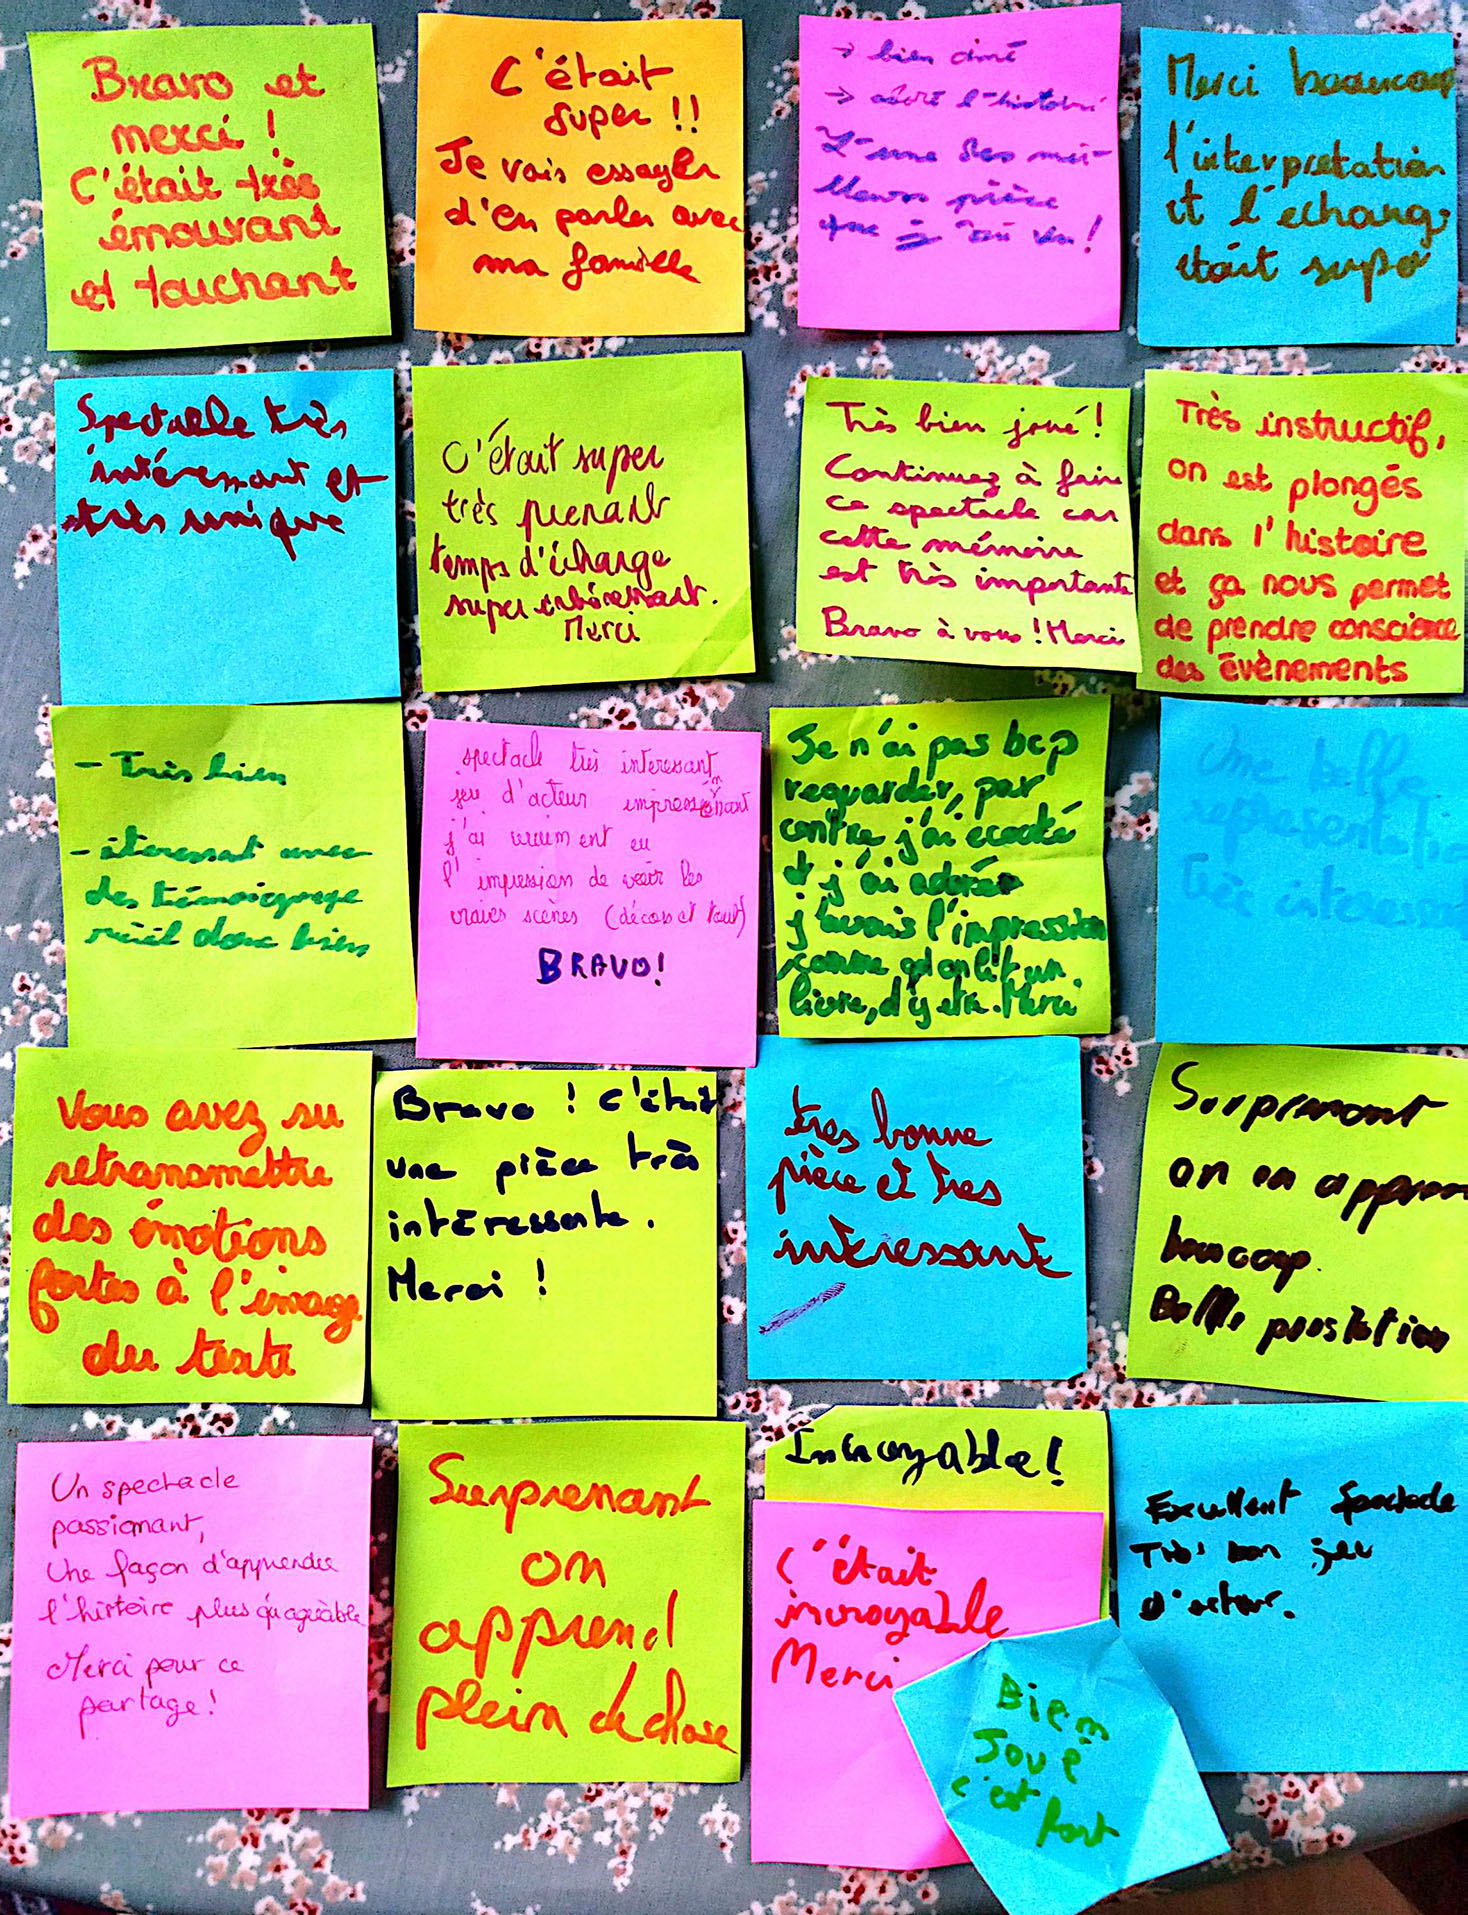 Bravo et
merci !
C'était très
émouvant
et touchant
C'était
super !!
Je vais essayer
d'en parler avec
ma famille
→ bien
→ l'histoire
L'une des mei-
lleurs pièce
que j'ai vu !
Merci beaucoup
l'interpretation
et l'echang
était super
Spectacle très
intéressant et
très unique
C'était super
très prenant
temps d'échange
super intéressant.
Merci
Très bien joué !
Continuez à faire
ce spectacle car
cette mémoire
est très importante
Bravo à vous ! Merci
Très instructif,
on est plongés
dans l'histoire
et ça nous permet
de prendre conscience
des évènements
- Très bien
- interessat avec
des témoignage
réél donc bien
spectacle très interessant
jeu d'acteur impressionnant
j'ai vraiment eu
l'impression de voir les
vraies scènes (décors et tout)
BRAVO!
Je n'ai pas bcp
reguarder, par
contre j'ai écouté
et j'ai adorér
j'avais l'impression
comme qd on lit un
livre, d'y etre. Merci
Une belle
représentatio
Très interessa
Vous avez su
retransmettre
des émotions
fortes à l'image
du texte
Bravo ! C'était
une pièce très
intéressante.
Merci !
tres bonne
pièce et tres
intéressante
Surprenant
on en appren
beaucoup.
Belle prestation
Un spectacle
passionant,
Une façon d'apprendre
l'histoire plus qu'agréable
Merci pour ce
partage !
Surprenant
on
apprend
plein de chose
Incroyable !
C'était
incroyable
Merci
Excellent Spectacle
Très bon jeu
d'acteur.
Biem
Joué
c'est fort